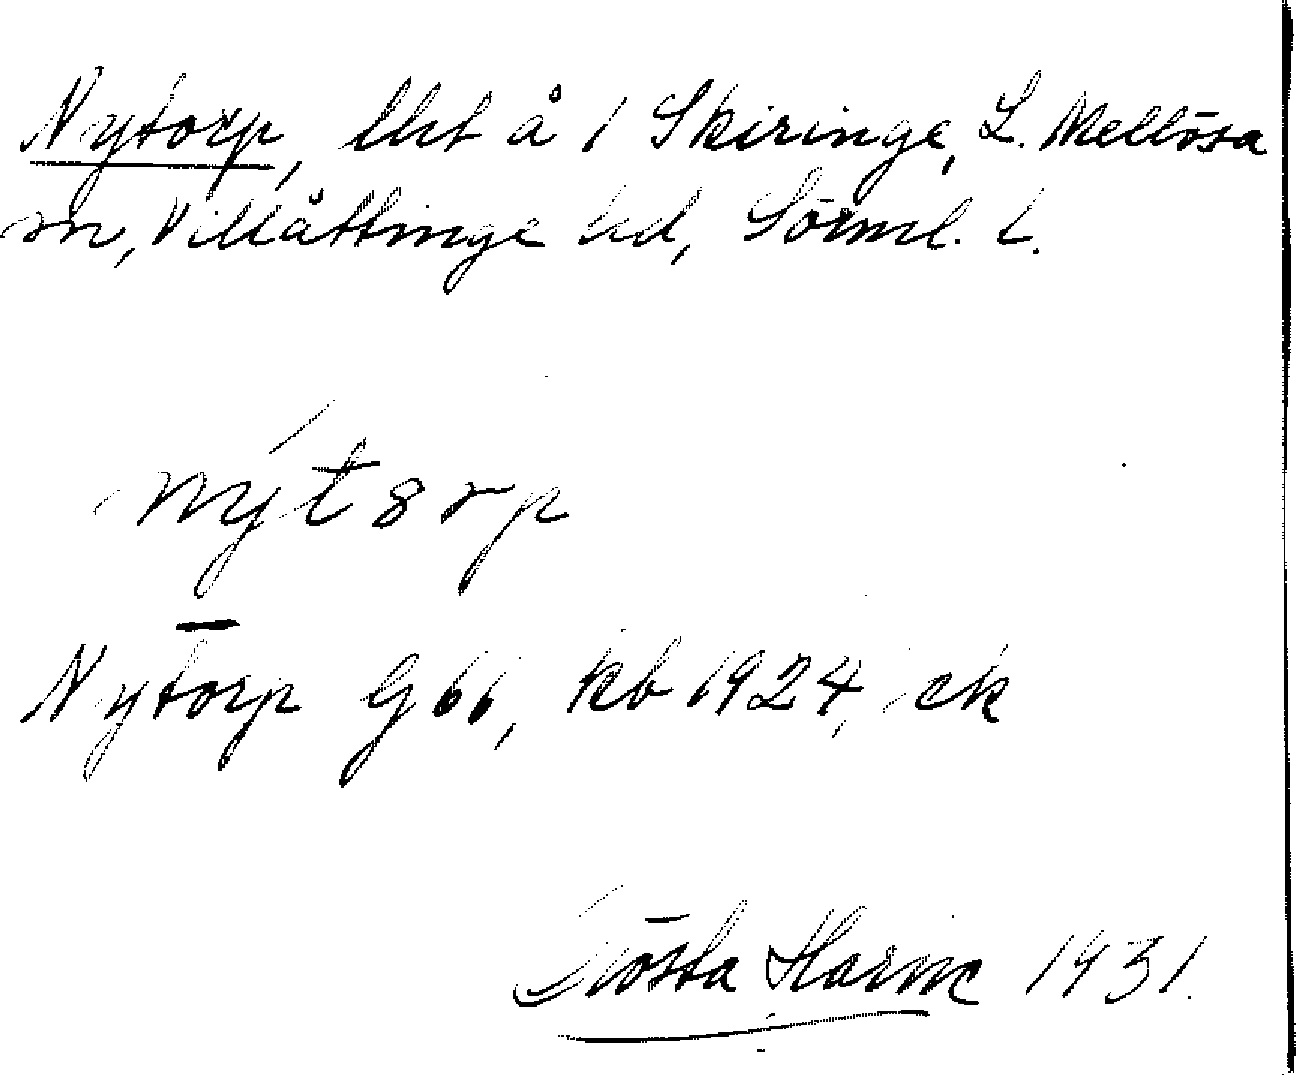 Nytorp, lht å 1 Skiringe, L. Mellösa
sn, Villåttinge hd, Sörml. l.
nýt8rp
Nytorp G 66, kb 1924, ek
Gösta Harme 1931.